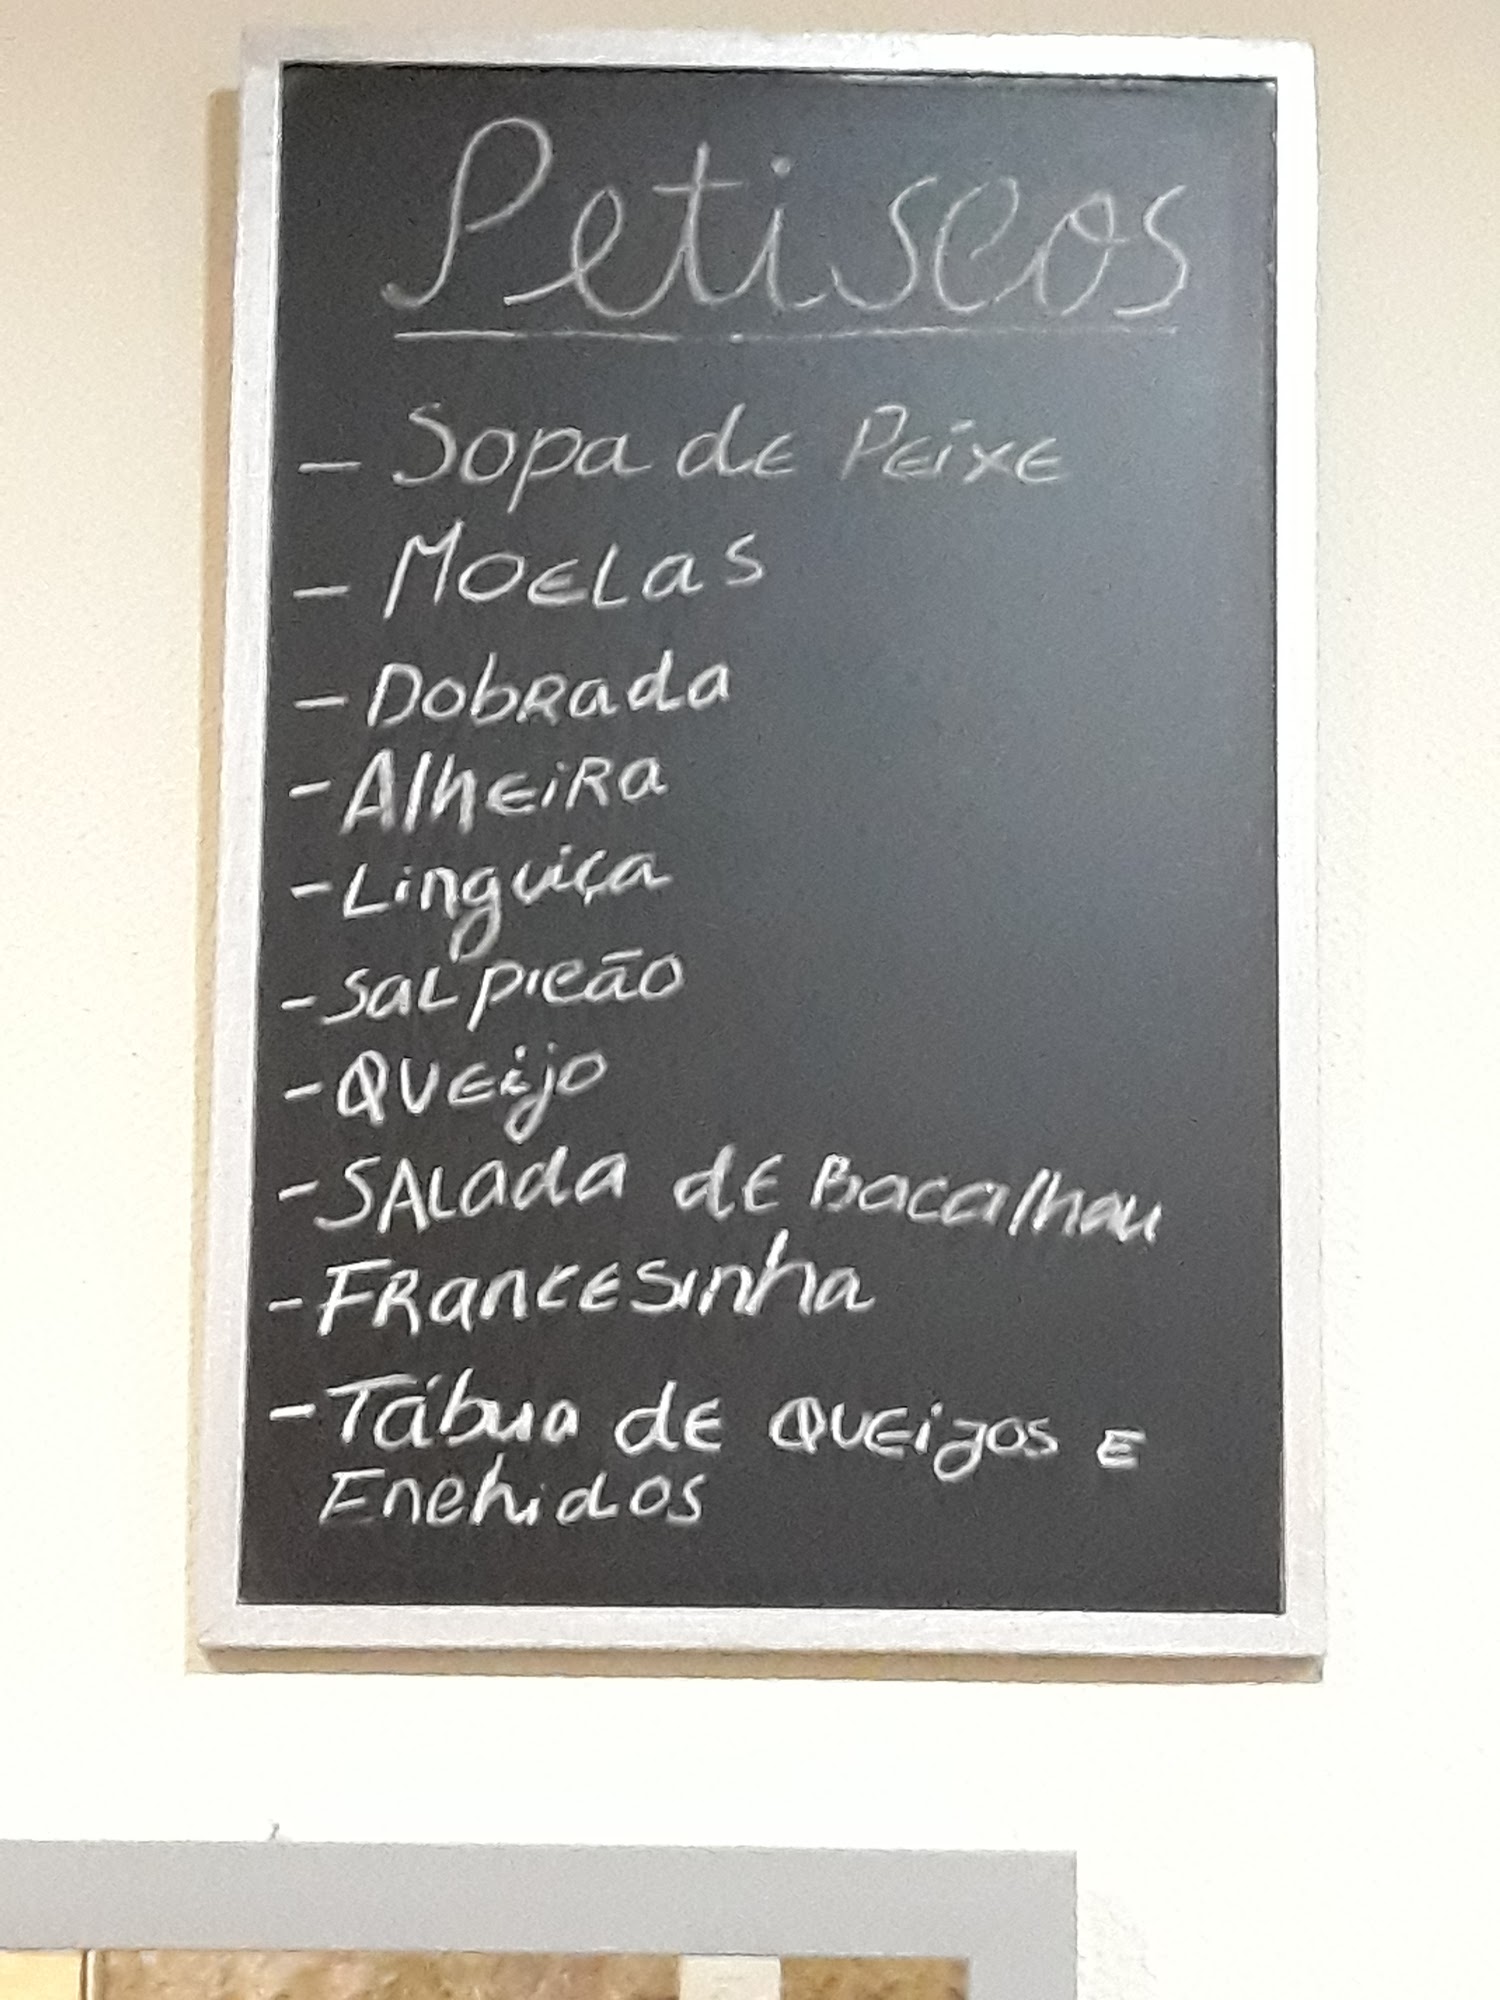 Petiscos
- Sopa de Peixe
- Moelas
- Dobrada
- Alheira
- Linguiça
- Salpicão
- Queijo
- Salada de Bacalhau
- Francesinha
- Tábua de Queijos e
Enchidos